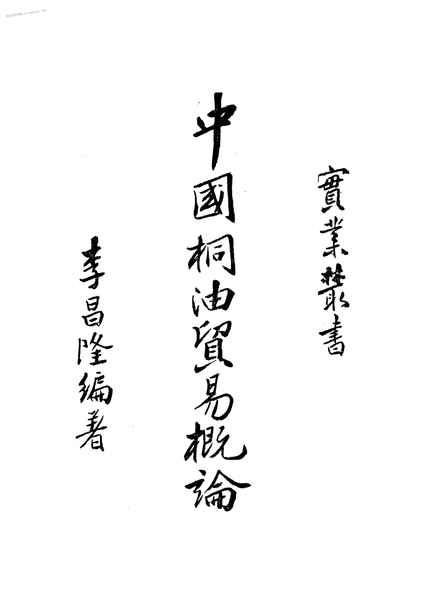 實業叢書
中國桐油貿易概論
李昌隆編著